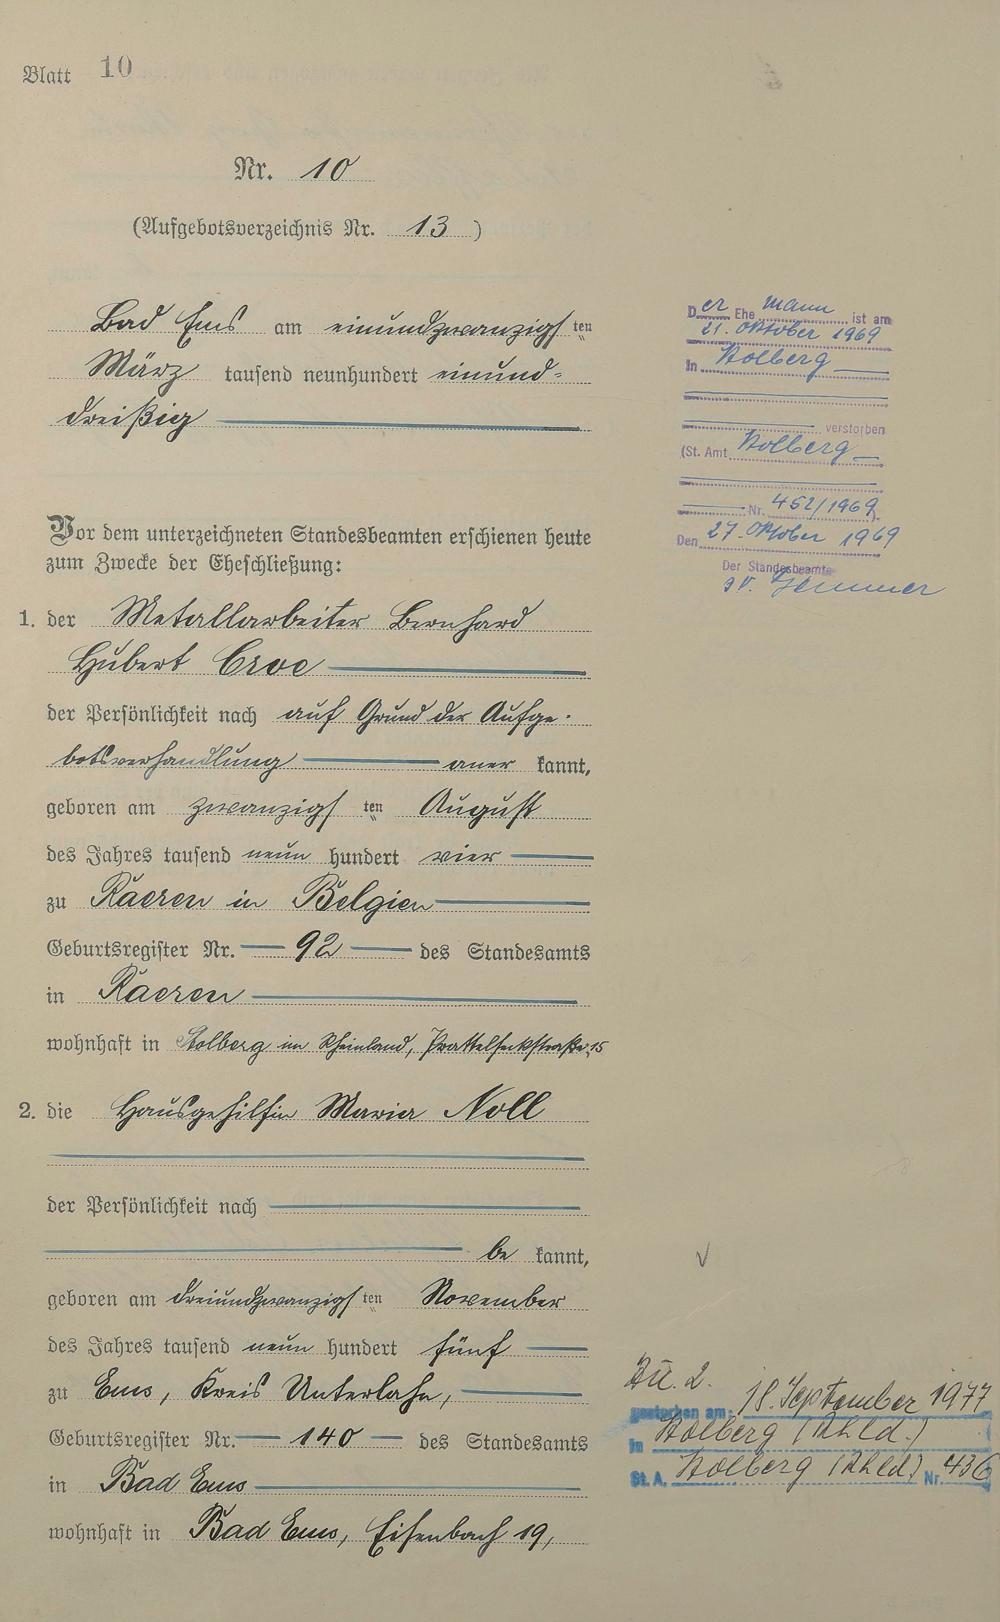 Blatt 10
Nr. 10
(Aufgebotsverzeichnis Nr. 13)
Bad Ems am einundzwanzigsten
März tausend neunhundert einund-
dreißig
Vor dem unterzeichneten Standesbeamten erschienen heute
zum Zwecke der Eheschließung:
1. der Metallarbeiter Bernhard
Hubert Croe
der Persönlichkeit nach auf Grund der Aufge-
botsverhandlung aner kannt,
geboren am zwanzigsten August
des Jahres tausend neun hundert vier
zu Raeren in Belgien
Geburtsregister Nr. 92 des Standesamts
in Raeren
wohnhaft in Stolberg im Rheinland, 15
2. die Hausgehilfin Maria Noll
der Persönlichkeit nach
be kannt,
geboren am dreiundzwanzigsten November
des Jahres tausend neun hundert fünf
zu Ems, Kreis Unterlahn,
Geburtsregister Nr. 140 des Standesamts
in Bad Ems
wohnhaft in Bad Ems, Eisenbach 19,
Der Ehe mann ist am
21. Oktober 1969
in Stolberg
verstorben
(St. Amt Stolberg
Nr. 452/1969)
Den 27. Oktober 1969
Der Standesbeamte
Zu. 2.
gestorben am: 18. September 1977
in Stolberg (Rhld.)
St. A. Stolberg (Rhld) Nr. 436